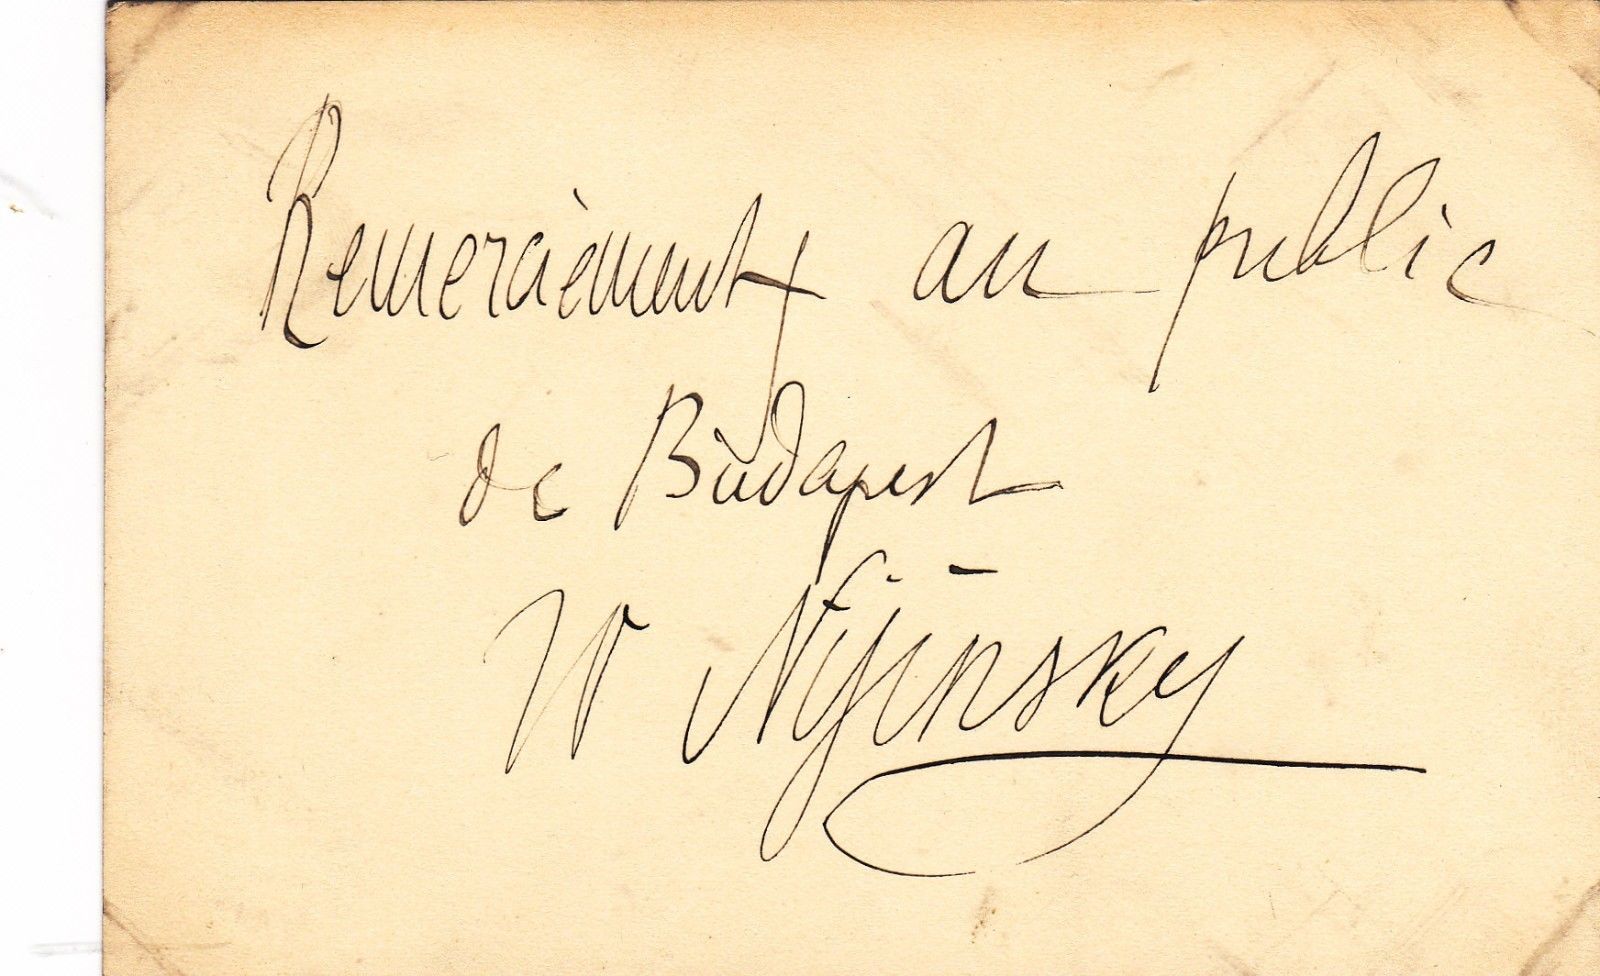 Remerciement au public
de Budapest
W Nijinsky